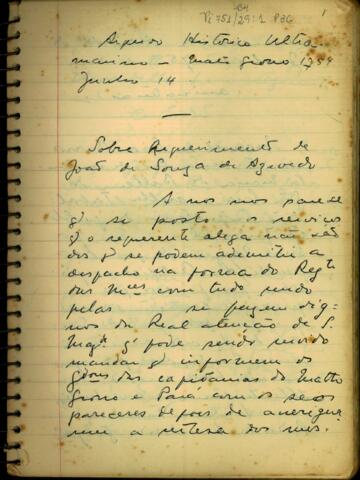 Vi 751/29:1 P26
1
Arquivo Historico Ultra
marino – Mato Grosso 1754
Junho 14
Sobre Requerimento de
João de Souza de Azevedo
A nos nos parece
q̃ si posto os serviços
q̃ o requerente alega não são
dos q̃ se podem ademitir a
despacho na forma do Regto
das Mces com tudo sendo
pelas se fazem dig-
nos da Real atenção de S.
Magde q̃ pode sendo servido
mandar q̃ informem os
Gdores das capitanias do Matto
Grosso e Pará com os seos
pareceres depois de averigua
rem a certeza dos